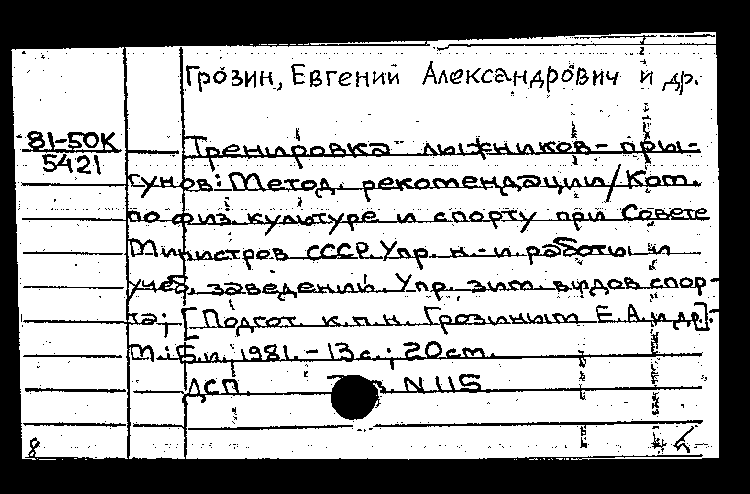 Грозин, Евгений Александрович и др.
81-50К
5421
Тренировка лыжников-пры-
гунов: Метод. рекомендации/Ком.
по физ. культуре и спорту при Совете
Министров СССР. Упр. н.-и. работы и
учеб. заведений. Упр. зим. видов спор-
та; [Подгот. к.п.н. Грозиным Е.А. и др.].-
М.: Б.и., 1981. - 13 с.; 20 см.
ДСП. N 115
8